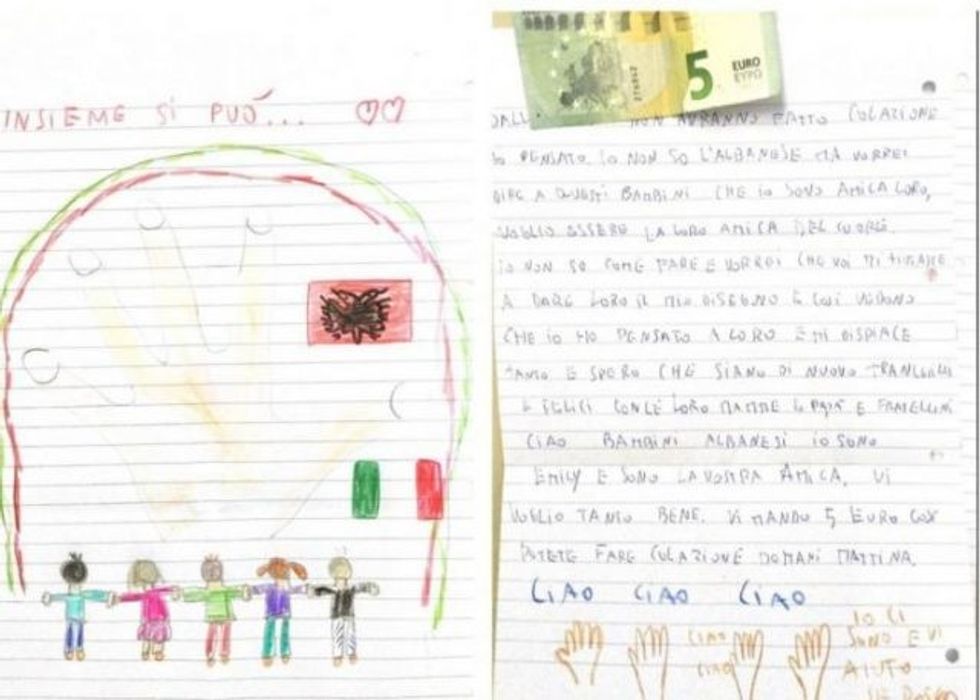 INSIEME SI PUÓ...
5 EURO
ΕΥΡΩ
NON AVRANNO FATTO COLAZIONE
PENSATO IO NON SO L'ALBANESE MA VORREI
DIRE A QUESTI BAMBINI CHE IO SONO AMICA LORO,
VOGLIO ESSERE LA LORO AMICA DEL CUORE.
IO NON SO COME FARE E VORREI CHE VOI MI
A DARE LORO IL MIO DISEGNO E COSI VEDONO
CHE IO HO PENSATO A LORO E MI DISPIACE
TANTO E SPERO CHE SIANO DI NUOVO TRANQUILLI
E FELICI CON LE LORO MAMME E PAPÀ E FRATELLINI
CIAO BAMBINI ALBANESI IO SONO
EMILY E SONO LA VOSTRA AMICA. VI
VOGLIO TANTO BENE. VI MANDO 5 EURO COSI
POTETE FARE COLAZIONE DOMANI MATTINA.
CIAO CIAO CIAO
CIAO
CIAO
IO CI
SONO E VI
AIUTO